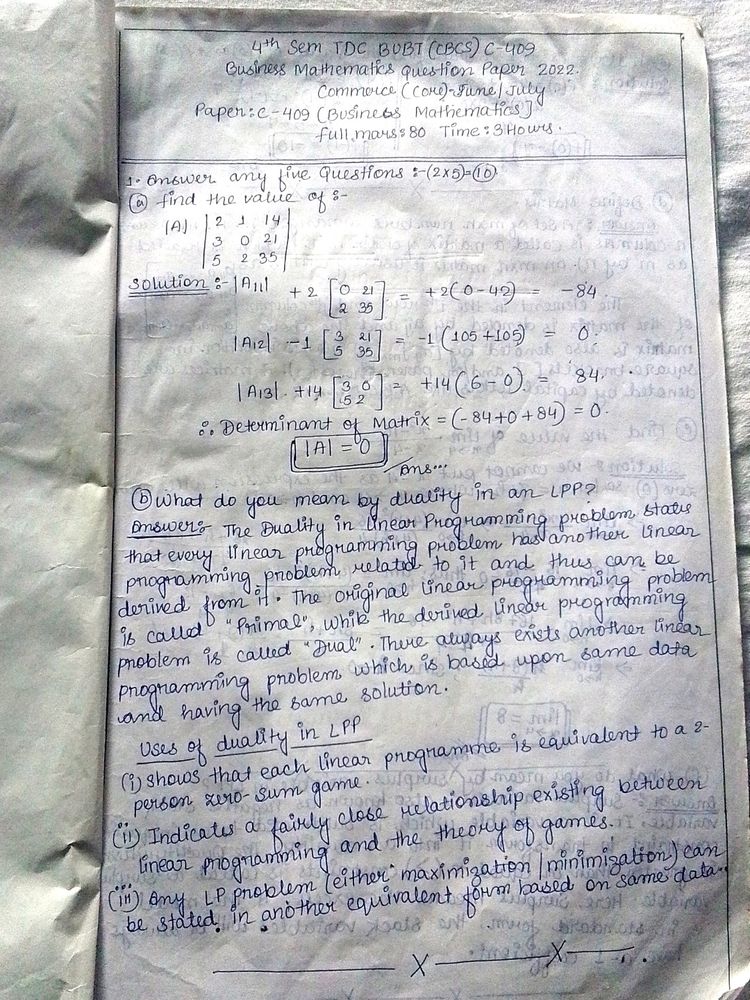 4th Sem TDC BVBT (CBCS) C-409
Business Mathematics Question Paper 2022.
Commerce (Core)-June/July
Paper: C-409 (Business Mathematics]
full mars: 80 Time: 3 Hours.
1. Answer any five Questions :-(2x5)=(10)
(a) find the value of :-
|A| | 2 1 14 |
| 3 0 21 |
| 5 2 35 |
Solution :- |A11| + 2 [0 21 2 35] = +2(0-42) = -84
|A12| -1 [3 21 5 35] = -1(105+105) = 0.
|A13| +14 [3 0 5 2] = +14(6-0) = 84.
∴ Determinant of Matrix = (-84+0+84) = 0.
|A| = 0
Ans...
(b) What do you mean by duality in an LPP?
Answer:- The Duality in Linear Programming problem states
that every linear programming problem has another linear
programming problem related to it and thus can be
derived from it. The original linear programming problem
is called "Primal", while the derived linear programming
problem is called "Dual". There always exists another linear
programming problem which is based upon same data
and having the same solution.
Uses of duality in LPP
(i) shows that each linear programme is equivalent to a 2-
person zero-sum game.
(ii) Indicates a fairly close relationship existing between
linear programming and the theory of games.
(iii) Any LP problem (either maximization/minimization) can
be stated in another equivalent form based on same data..
X X